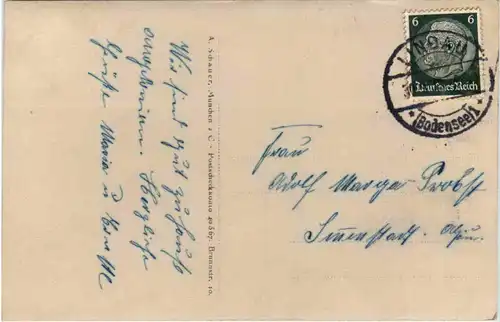 Wir sind gut zu Hause
angekommen. Herzliche
Grüße Maria u
A. Schauer, München 2 C - Postscheckkonto - Brunnstr. 10.
6 6
Deutsches Reich
LINDAU
(Bodensee) 1
Frau
Adolf Probst
Immenstadt. Allgäu.